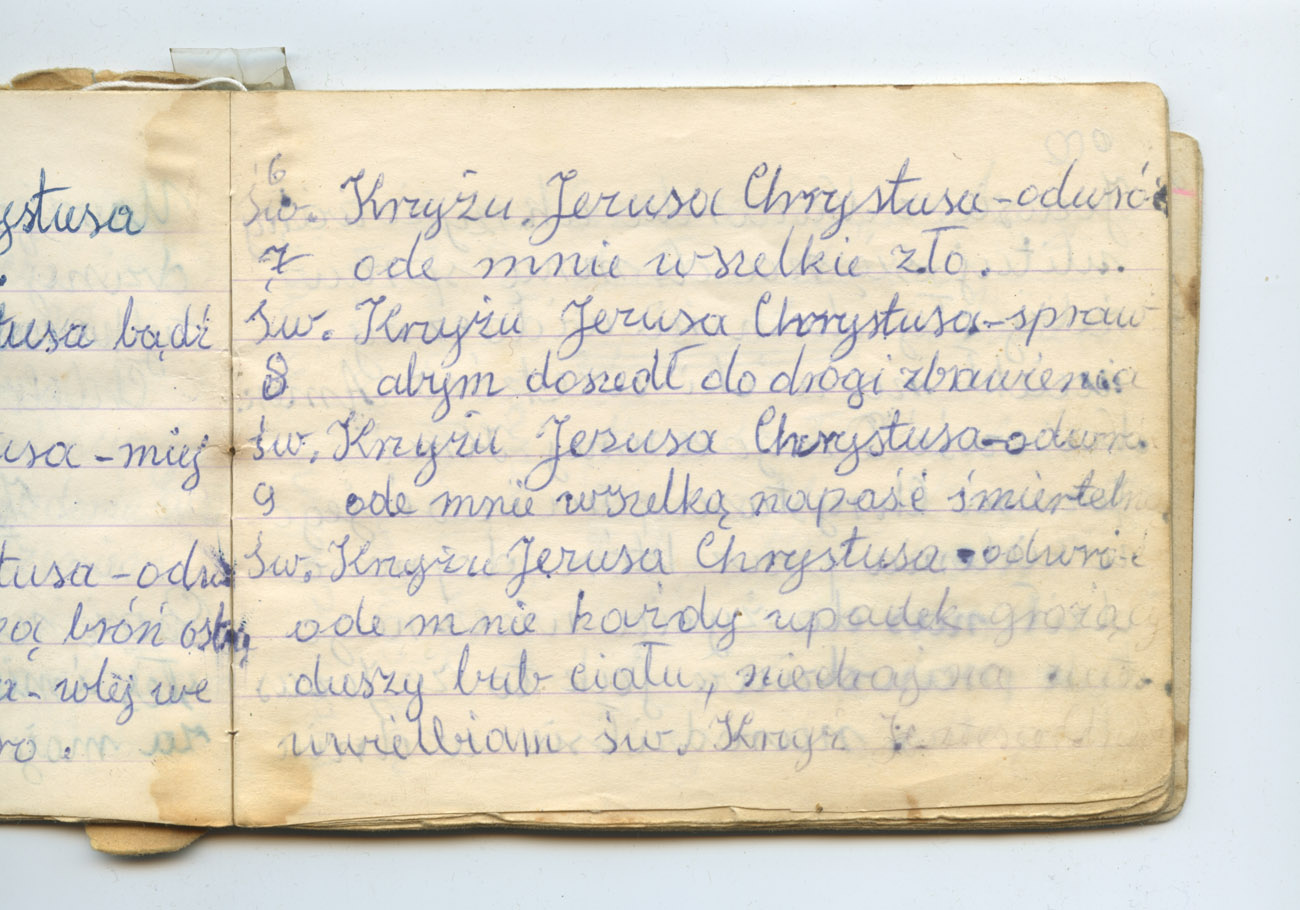 ystusa
tusa bądź
usa - miej
tusa - odw
broń ostrą
- wlej we
ro.
6
Św. Krzyżu Jezusa Chrystusa - odwró
7 ode mnie wszelkie zło.
Św. Krzyżu Jezusa Chrystusa - spraw
8 abym doszedł do drogi zbawienia
Św. Krzyżu Jezusa Chrystusa - odwró
9 ode mnie wszelką napaść śmierteln
Św. Krzyżu Jezusa Chrystusa - odwróć
ode mnie każdy upadek grożący
duszy lub ciału, niechaj na
uwielbiam św. Krzyż Jezusa